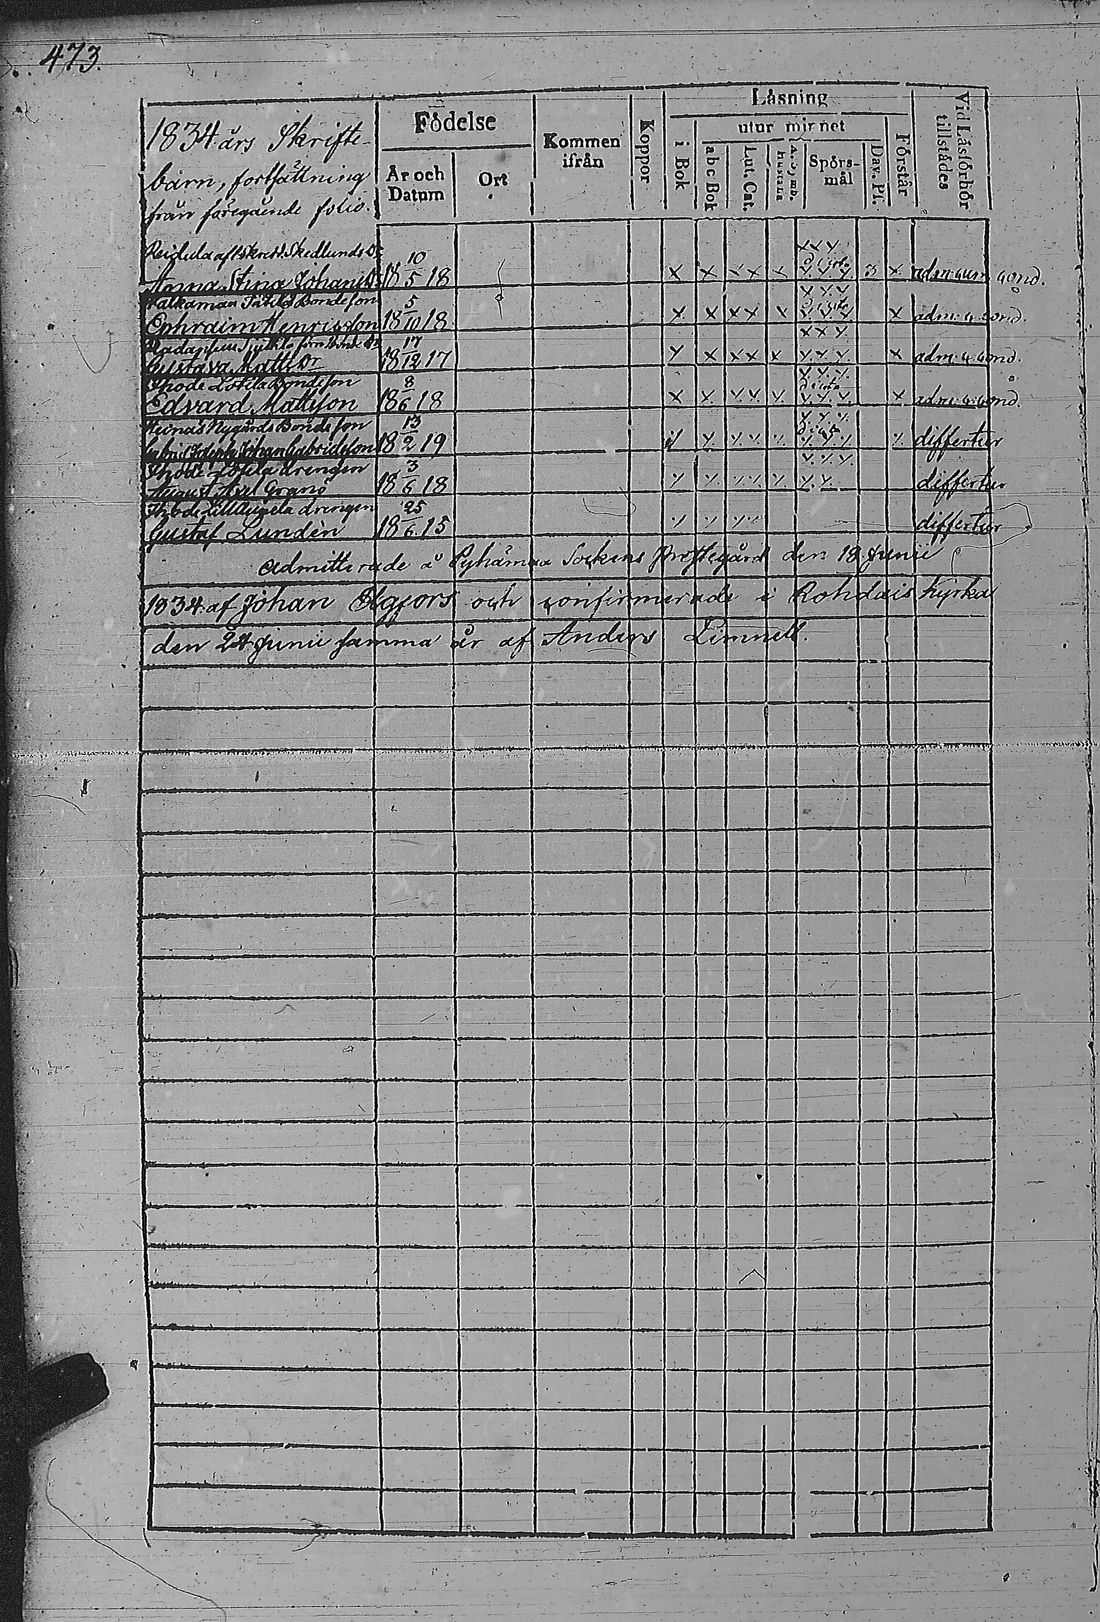 473.
1834 års Skrifte-
barn, fortsättning
från föregående folio.
Födelse
År och
Datum
Ort
Kommen
ifrån
Koppor
Läsning
utur minnet
i Bok
abc Bok
Lut. Cat.
A. Symb.
Hustafla
Spörs-
mål
Dav. Ps.
Förstår
Vid Läsförhör
tillstädes
10
Anna Stina Johans Dr 18 5 18 x x x x x x x x x 3 x adm. cond.
Bondeson 5
Ephraim Henricsson 18 10 18 x x x x x x x x x x adm. a. cond.
17
Gustava Matts Dr 18 12 17 x x x x x x x x x adm. a. cond.
Thode Bondeson 8
Edvard Mattsson 18 6 18 x x x x x x x x x adm. a. cond.
Nygårds Bondeson 13
Johan Gabrielsson 18 2 19 x x x x x x x x x differtur
Thode drengen 3
August Axel Granö 18 6 18 x x x x x x x differtur
Thode drengen 25
Gustaf Lundèn 18 6 15 x x x x differtur
admitterade å Pyhämaa Sockens Prestegård den 18 Junii
1834 af Johan Elgfors och confirmerade i Rohdais Kyrka
den 24 Junii samma år af Anders Limnell.